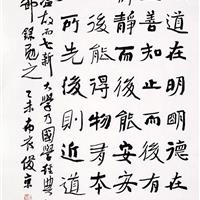 道在明明德在
善知止而后有
静而後能安安
後能得物有本
所先後則近道
大學乃國學經典
録勉之
乙未